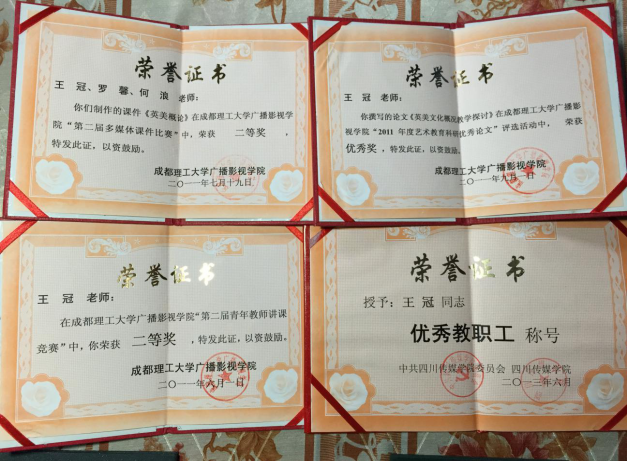 荣誉证书
王 冠、罗 馨、何 浪 老师：
你们制作的课件《英美概论》在成都理工大学广播影视学
院“第二届多媒体课件比赛”中，荣获 二等奖 ，
特发此证，以资鼓励。
成都理工大学广播影视学院
二〇一一年七月十九日
荣誉证书
王 冠 老师：
你撰写的论文《英美文化概况教学探讨》在成都理工大学广播影
视学院“2011 年度艺术教育科研优秀论文”评选活动中， 荣获
优秀奖，特发此证，以资鼓励。
成都理工大学广播影视学院
二〇一一年九月一日
荣誉证书
王 冠 老师：
在成都理工大学广播影视学院“第二届青年教师讲课
竞赛”中，你荣获 二等奖 ，特发此证，以资鼓励。
成都理工大学广播影视学院
二〇一一年六月一日
荣誉证书
授予：王 冠 同志
优秀教职工 称号
中共四川传媒学院委员会 四川传媒学院
二〇一三年六月